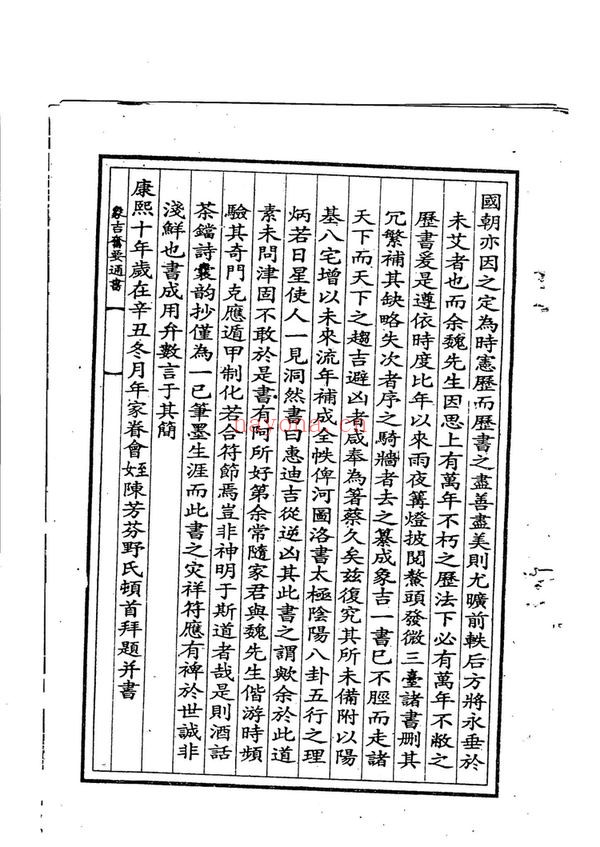 國朝亦因之定為時憲歷而歷書之盡善盡美則尤曠前軼后方將永垂於
未艾者也而余魏先生因思上有萬年不朽之歷法下必有萬年不敝之
歷書爰是遵依時度比年以來雨夜篝燈披閱鰲頭發微三臺諸書刪其
冗繁補其缺略失次者序之騎牆者去之纂成象吉一書已不脛而走諸
天下而天下之趨吉避凶者咸奉為蓍蔡久矣茲復究其所未備附以陽
基八宅增以未來流年補成全帙俾河圖洛書太極陰陽八卦五行之理
炳若日星使人一見洞然書曰惠迪吉從逆凶其此書之謂歟余於此道
素未問津固不敢於是書有阿所好第余常隨家君與魏先生偕游時頻
驗其奇門克應遁甲制化若合符節焉豈非神明于斯道者哉是則酒話
茶鐺詩囊韵抄僅為一己筆墨生涯而此書之灾祥符應有裨於世誠非
淺鮮也書成用弁數言于其簡
康熙十年歲在辛丑冬月年家眷會姪陳芳芬野氏頓首拜題并書
象吉備要通書
nayona.cn